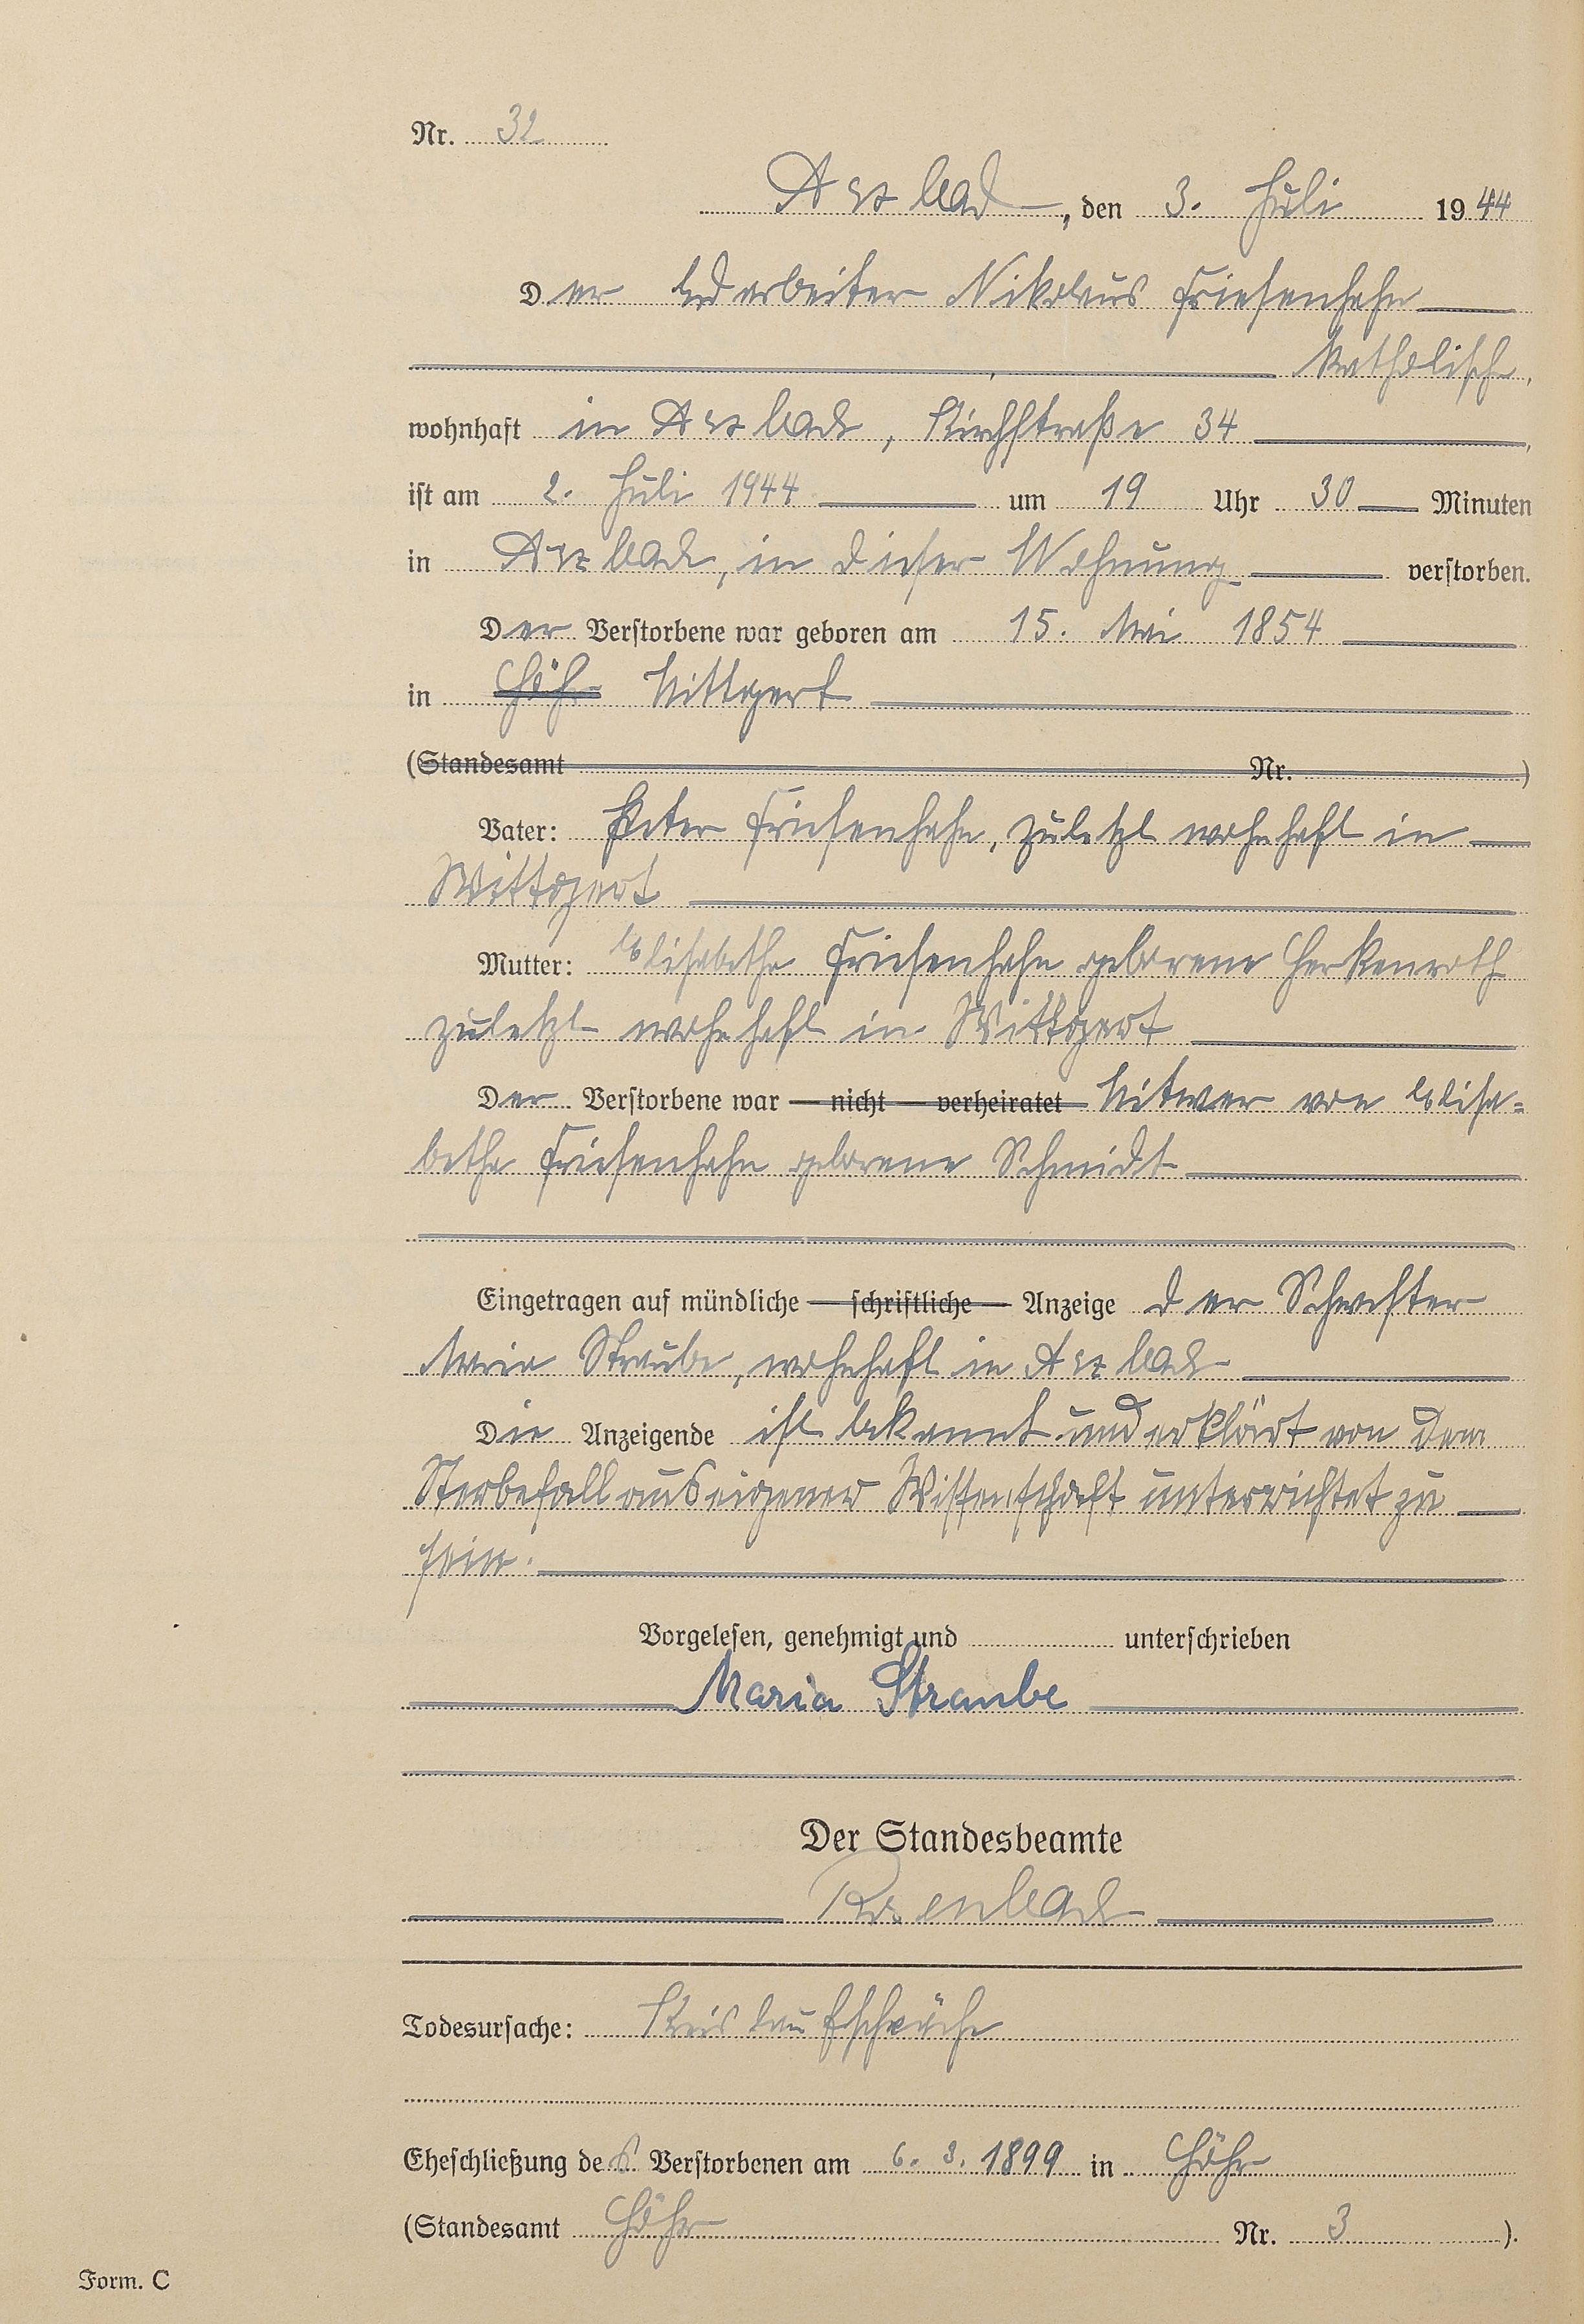 Nr. 32
Arzbach, den 3. Juli 1944
Der Erdarbeiter Nikolaus Friesenhahn
katholisch,
wohnhaft in Arzbach, Kirchstraße 34,
ist am 2. Juli 1944 um 19 Uhr 30 Minuten
in Arzbach, in dieser Wohnung verstorben.
Der Verstorbene war geboren am 15. Mai 1854
in Höhr Wittgert
(Standesamt Nr. )
Vater: Peter Friesenhahn, zuletzt wohnhaft in
Wittgert
Mutter: Elisabetha Friesenhahn geborene Herkenroth
zuletzt wohnhaft in Wittgert
Der Verstorbene war — nicht — verheiratet Witwer von Elisa=
betha Friesenhahn geborene Schmidt
Eingetragen auf mündliche — schriftliche — Anzeige der Schwester
Maria Straube, wohnhaft in Arzbach
Die Anzeigende ist bekannt und erklärt von dem
Sterbefall aus eigener Wissenschaft unterrichtet zu
sein.
Vorgelesen, genehmigt und unterschrieben
Maria Straube
Der Standesbeamte
Todesursache: Kreislaufschwäche
Eheschließung des Verstorbenen am 6. 3. 1899 in Höhr
(Standesamt Höhr Nr. 3 ).
Form. C